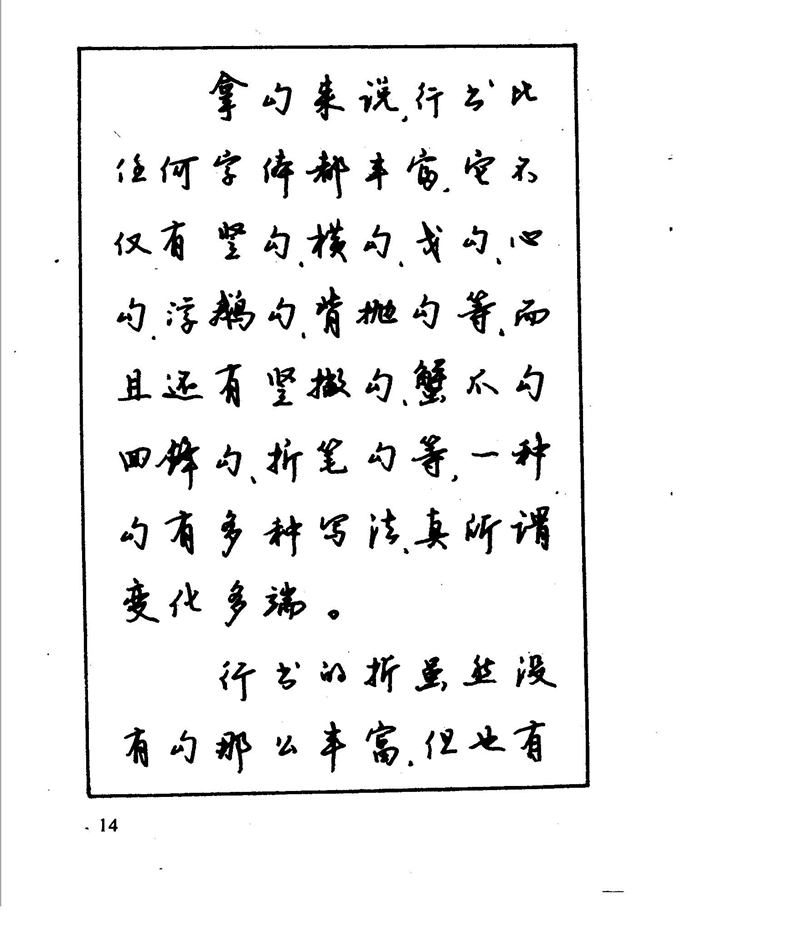 拿勾来说,行书比
任何字体都丰富,它不
仅有竖勾、横勾、戈勾、心
勾、浮鹅勾、背抛勾等,而
且还有竖撇勾、蟹爪勾
回锋勾、折笔勾等,一种
勾有多种写法,真所谓
变化多端。
行书的折虽然没
有勾那么丰富,但也有
14